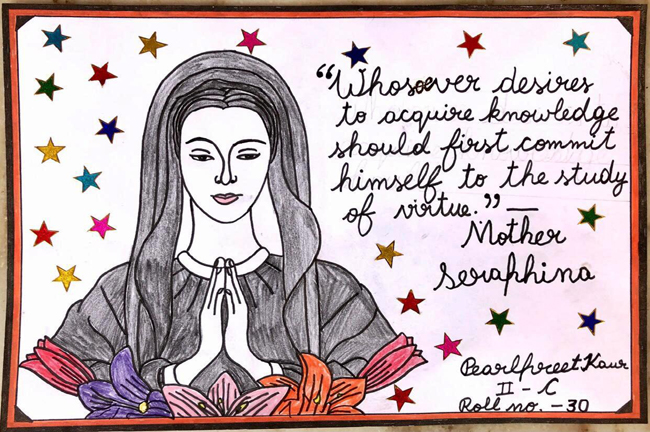 “Whosoever desires
to acquire knowledge
should first commit
himself to the study
of virtue.” —
Mother
Seraphina
Pearlpreet Kaur
II - C
Roll no. -30